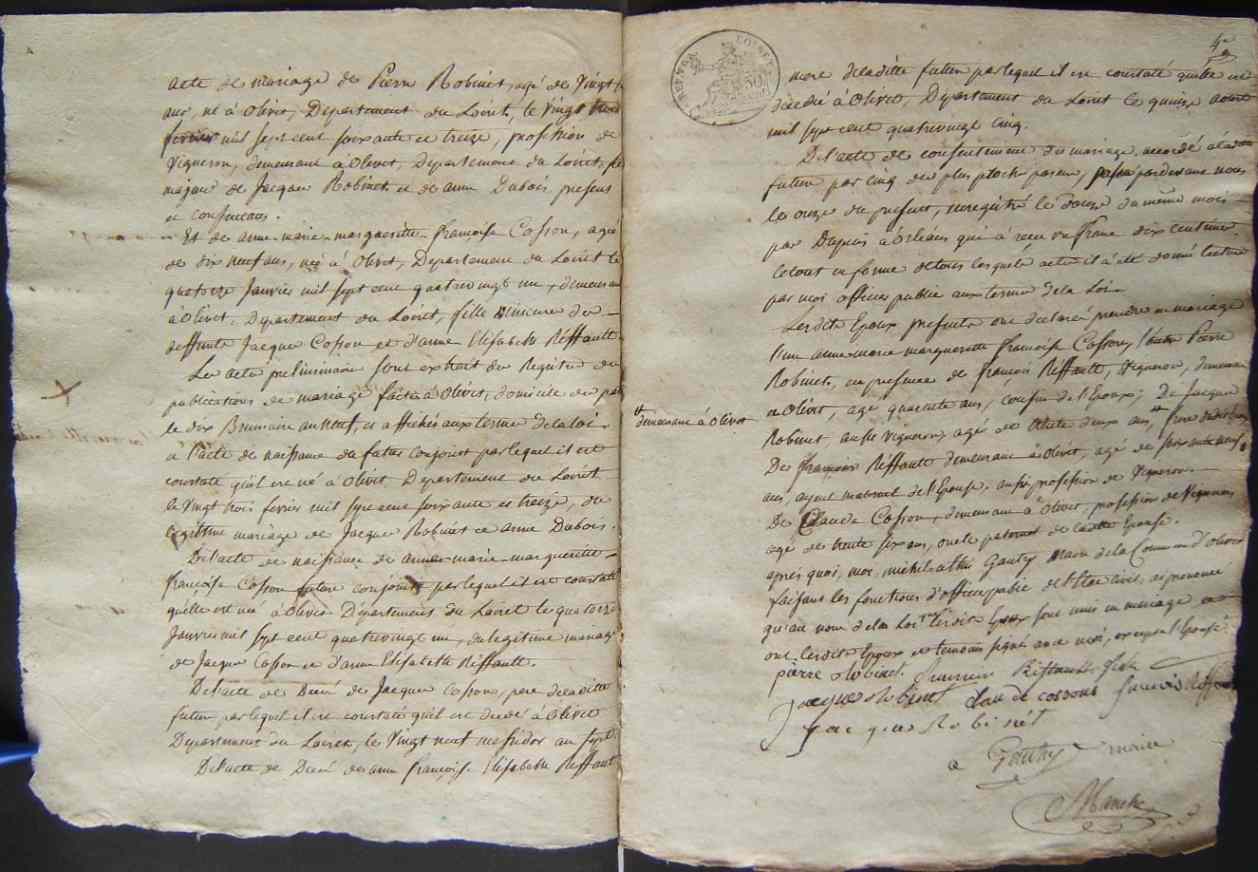 acte de mariage de Pierre Robinet, agé de Vingt sept
ans, né à Olivet, Département du Loiret, le Vingt trois
fevrier mil sept cent soixante et treize, profession de
Vigneron, demeurant à Olivet, Departement du Loiret, fils
majeur de Jacques Robinet et de anne Dubois presens
et consentans.
Et de anne-marie-margueritte-françoise Cosson, agée
de dix neuf ans, née à Olivet, Departement du Loiret le
quatorze Janvier mil sept cent quatrevingt un, demeurant
à Olivet, Departement du Loiret, fille Mineure de
deffunts Jacques Cosson et d'anne Elisabeth Réffault.
Les acte preliminaire sont extrait des Registre des
publications de mariage faites à Olivet, domicile des parties
le dix Brumaire an neuf, et affichés aux termes de la loi.
à l'acte de naissance du futur conjoint par lequel il est
constaté qu'il est né à Olivet Departement du Loiret
le Vingt trois fevrier mil sept cent soixante et treize, du
légitime mariage de Jacques Robinet et anne Dubois.
De l'acte de naissance de anne-marie-margueritte-
françoise Cosson future conjointe par lequel il est constaté
qu'elle est née à Olivet Département du Loiret le quatorze
Janvier mil sept cent quatrevingt un, du legitime mariage
de Jacques Cosson et d'anne Elisabeth Réffault.
De l'acte de Décé de Jacques Cosson, pere de laditte
future par lequel il est constaté qu'il est décédé à Olivet
Departement du Loiret, le Vingt neuf messidor an sept.
De l'acte de Décé de anne françoise Elisabeth Réffault
4e
mere de laditte future par lequel il est constaté qu'elle est
décédée à Olivet, Departement du Loiret le quinze
mil sept cent quatrevingt cinq.
De l'acte de consentement du mariage accordé à ladite
future par cinq de plus proche parens, passé pardevant nous
le onze du présent, enregistré le douze du même mois
par Dupuis à Orléans qui à recu un franc dix centimes.
Letout en forme de tous lesquels actes il à été donné lecture
par moi officier public aux termes de la Loi.
Lesdits Epoux présents ont déclaré prendre en mariage
l'un anne-marie margueritte françoise Cosson, l'autre Pierre
Robinet, en présence de françois Réffault, Vigneron, demeurant
à Olivet, agé quarente ans, cousin de l'Epoux; De Jacques
demeurant à Olivet
Robinet aussi Vigneron, agé de trente deux ans, frere
De françois Réffault demeurant à Olivet, agé de soixante neuf
ans, ayeul maternel de l'Epouse, aussi profession de Vigneron.
De Claude Cosson, demeurant à Olivet, profession de Vigneron
agé de trente six ans, oncle paternel de laditte Epouse.
après quoi, moi, michel Gauthy Maire de la Commune d'olivet
faisant les fonctions d'officier public de l'état civil, ai prononcé
qu'au nom de la Loi lesdits Epoux sont unis en mariage et
ont lesdits Epoux et temoins signé avec moi, excepté l'Epouse.
pierre Robinet. Réffault
Jacque Robinet Claude cossons francois Réffault
Jacques Robinet
Gauthy maire